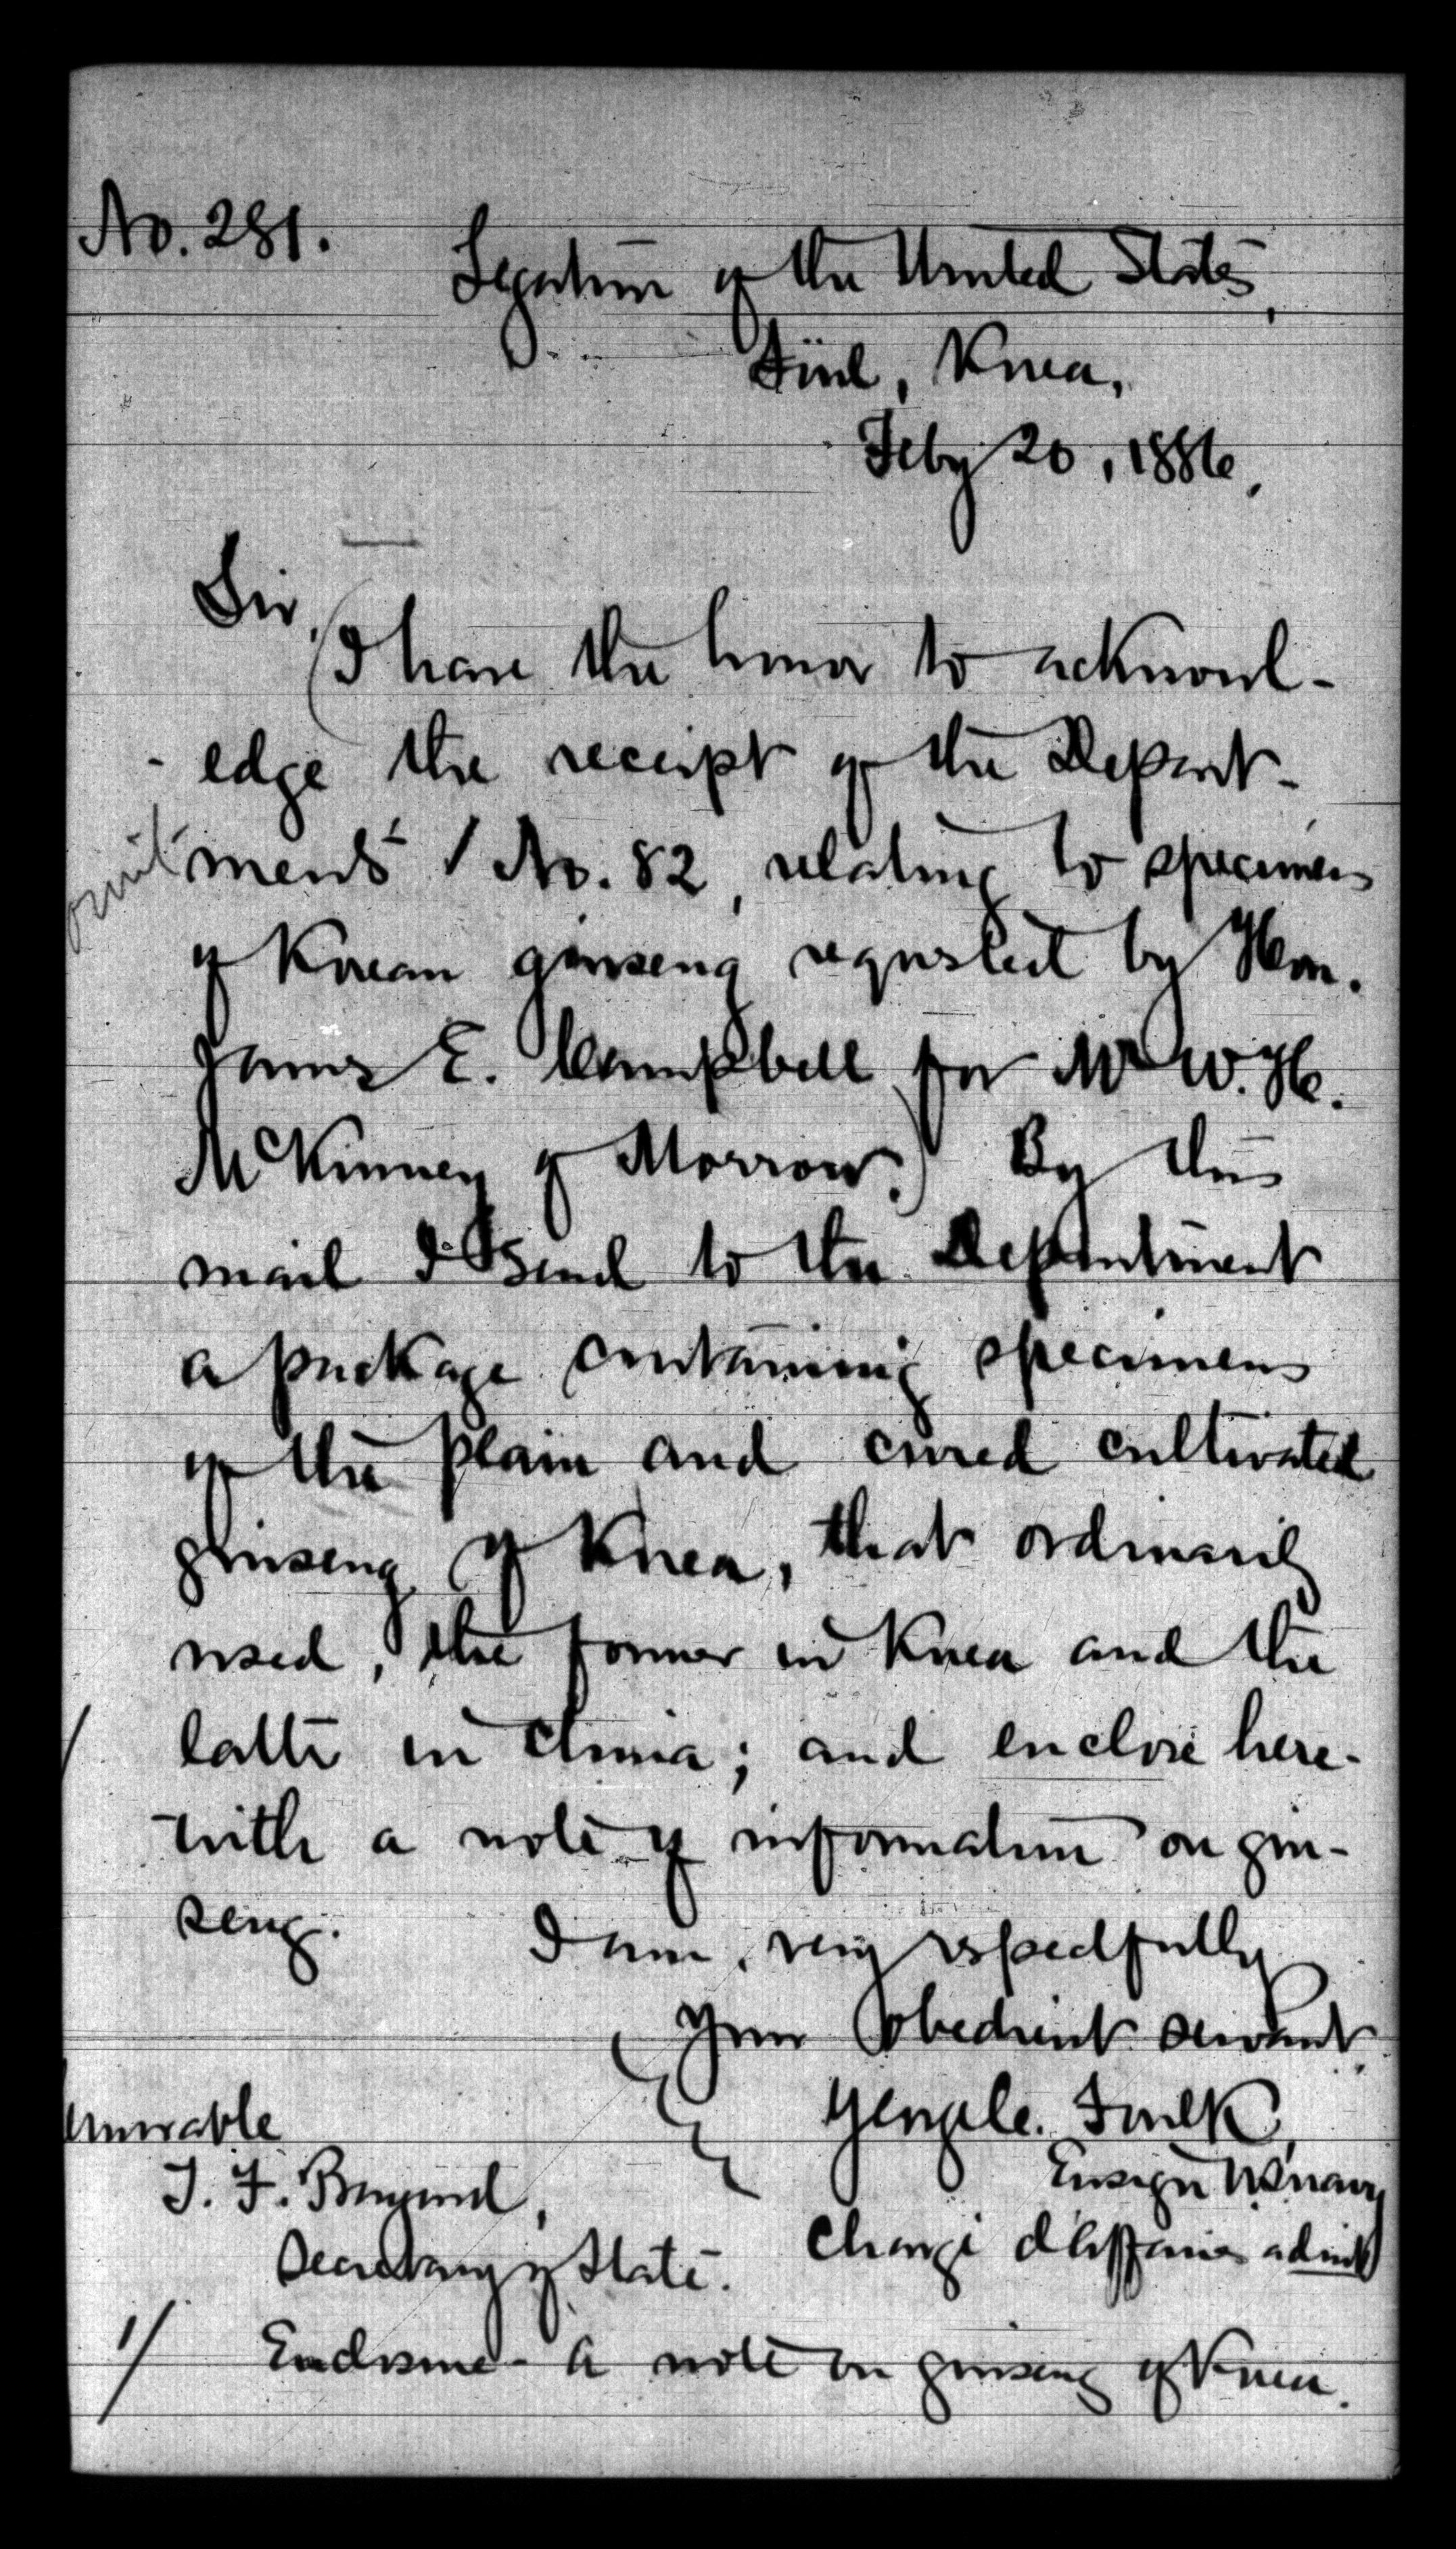 No. 281.
Legation of the United States,
Söul, Korea,
Feby 20, 1886,
Sir,
(I have the honor to acknowl-
edge the receipt of the Depart-
omit
ments' / No. 82, relating to specimens
of Korean ginseng requested by Hon.
James E. Campbell for Mr W. H.
McKinney of Morrow.) By this
mail I send to the Department
a package containing specimens
of the plain and cured cultivated
ginseng of Korea, that ordinarily
used, the former in Korea and the
/ latter in China; and enclose here-
with a note of information on gin-
seng.
I am, very respectfully
Your obedient servant
George C. Foulk,
Ensign U.S. navy
Chargé d'Affaires ad int
T. F. Bayard,
Secretary of State.
1/ Enclosure - A note on ginseng of Korea.